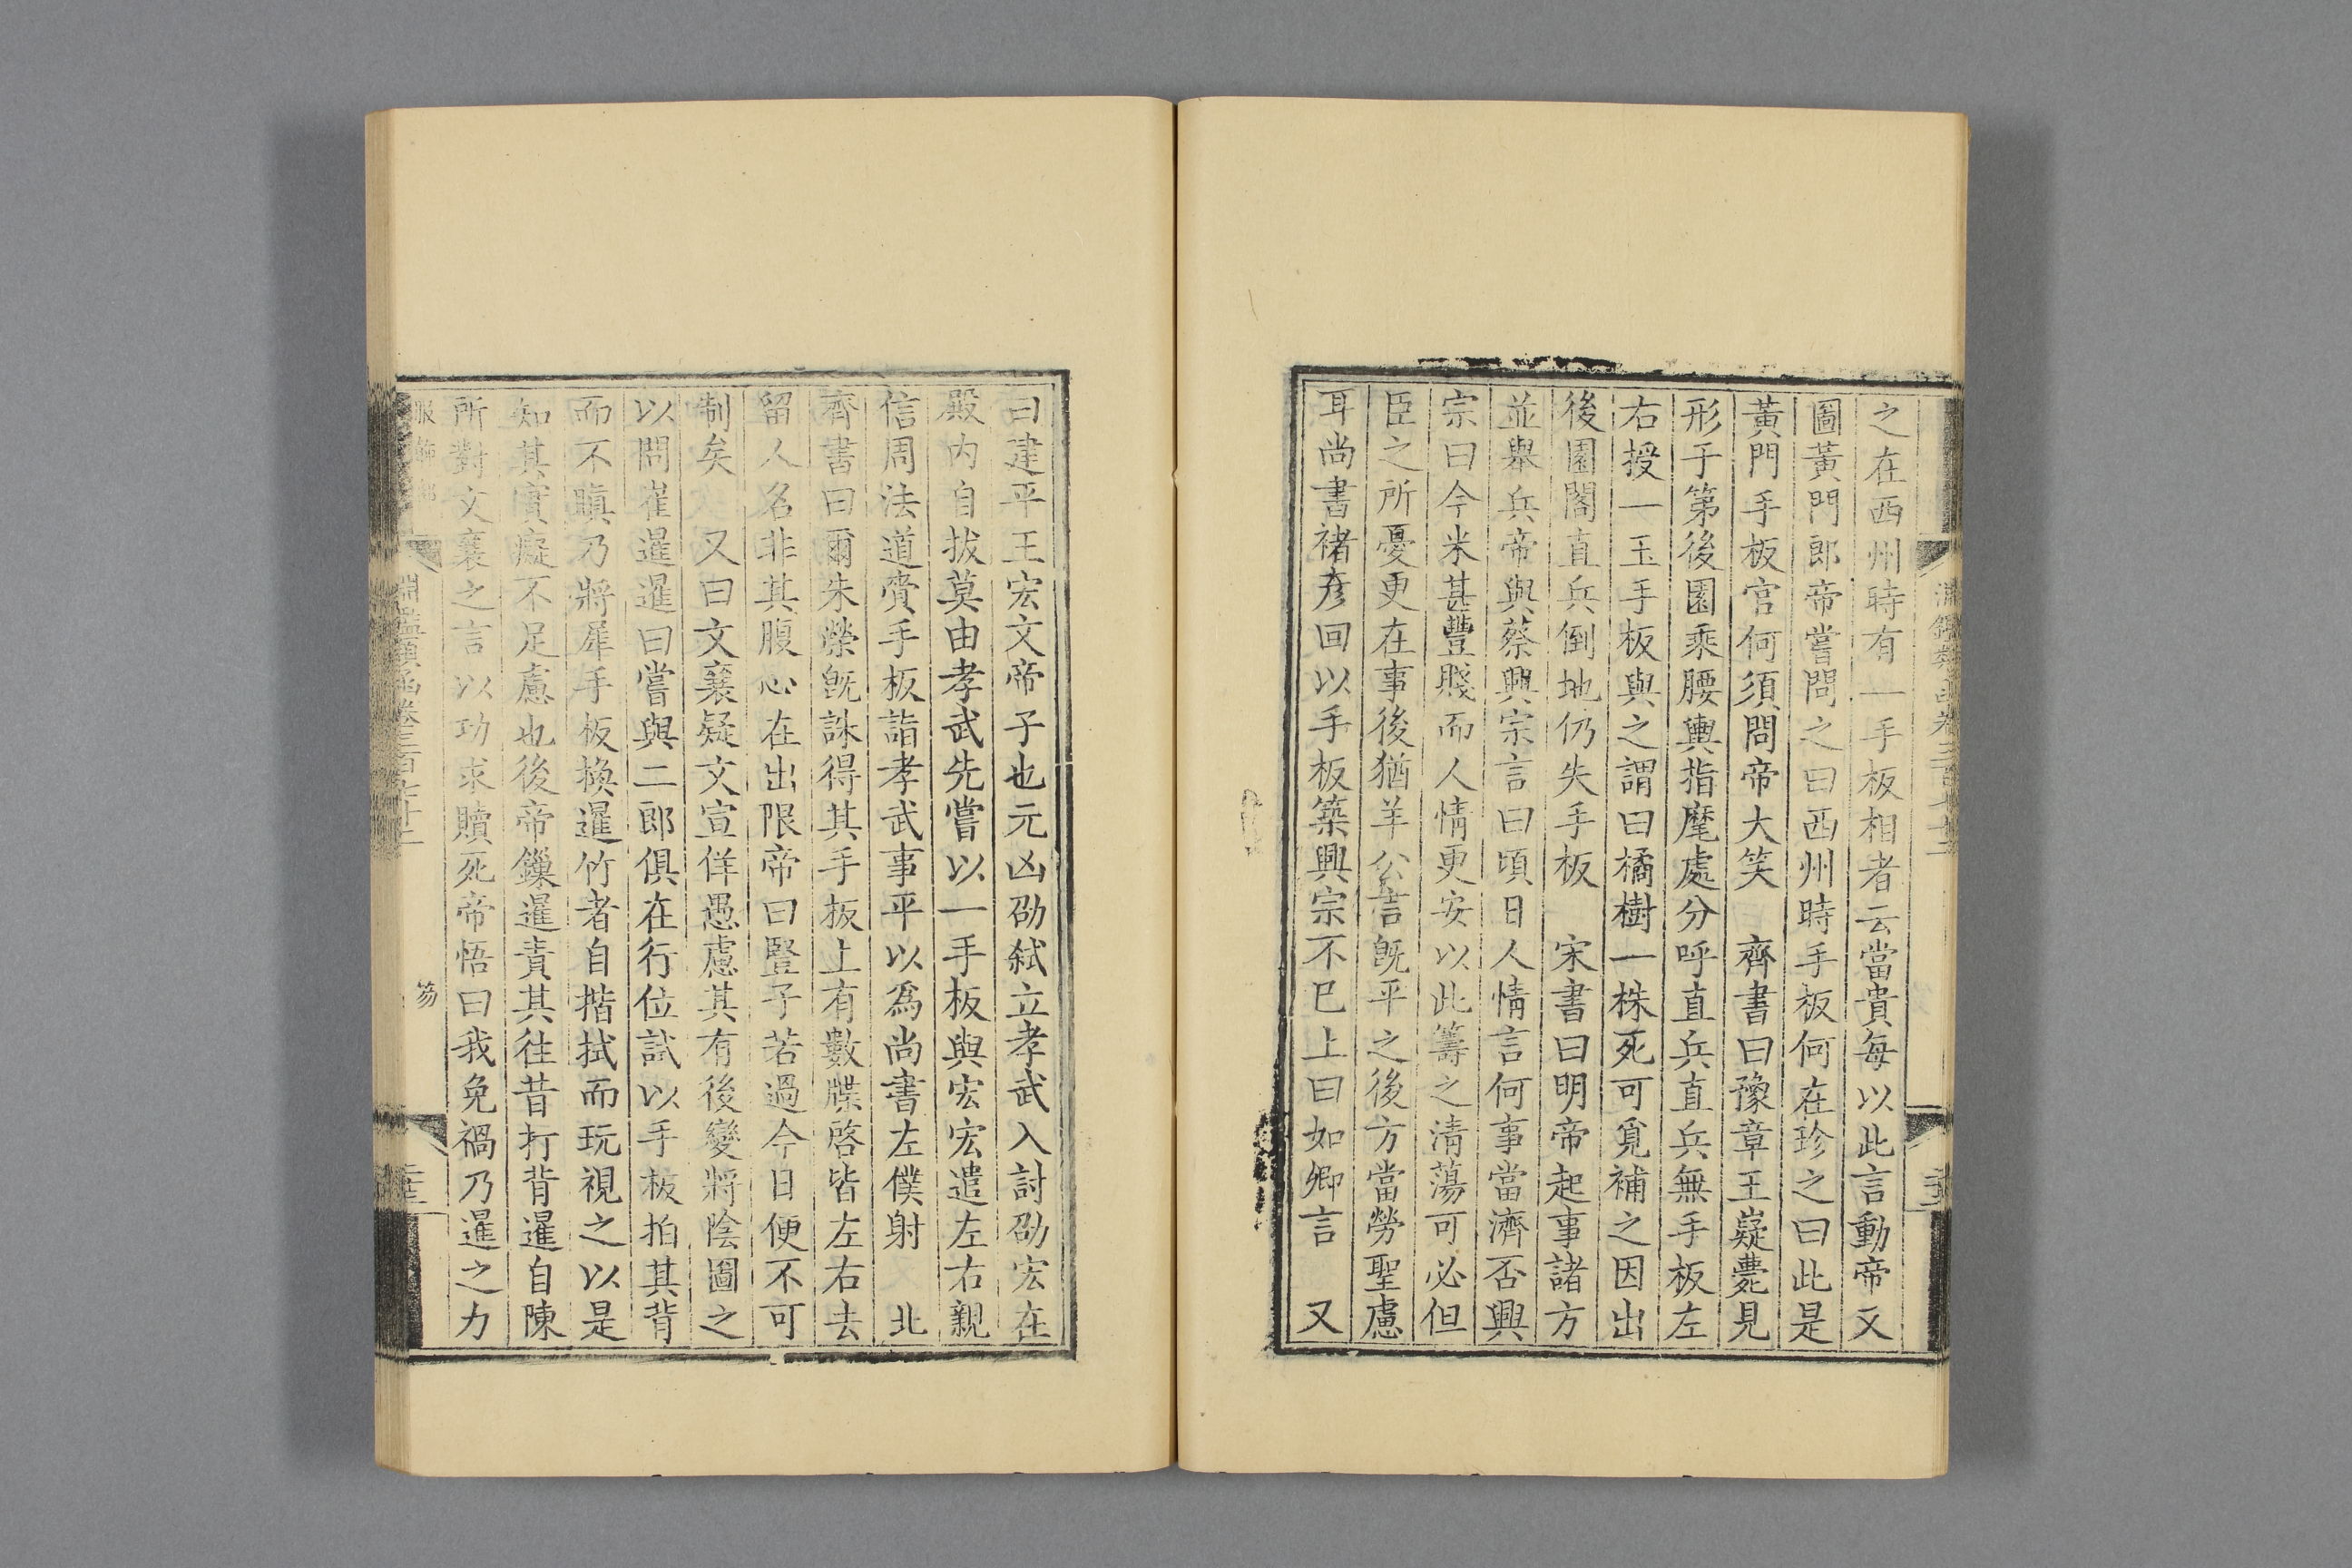 之在西州時有一手板相者云當貴每以此言動帝又
圖黃門郎帝嘗問之曰西州時手板何在珍之曰此是
黃門手板官何須問帝大笑　齊書曰豫章王嶷薨見
形于第後園乘腰輿指麾處分呼直兵直兵無手板左
右授一玉手板與之謂曰橘樹一株死可覓補之因出
後園閤直兵倒地仍失手板　宋書曰明帝起事諸方
並舉兵帝與蔡興宗言曰頃日人情言何事當濟否興
宗曰今米甚豐賤而人情更安以此籌之清蕩可必但
臣之所憂更在事後猶羊公言旣平之後方當勞聖慮
耳尚書褚彥回以手板築興宗不巳上曰如卿言　又
曰建平王宏文帝子也元凶劭弑立孝武入討劭宏在
殿內自拔莫由孝武先嘗以一手板與宏宏遣左右親
信周法道賫手板詣孝武事平以爲尚書左僕射　北
齊書曰爾朱榮旣誅得其手板上有數牒啓皆左右去
留人名非其腹心在出限帝曰豎子若過今日便不可
制矣　又曰文襄疑文宣佯愚慮其有後變將陰圖之
以問崔暹暹曰嘗與二郎俱在行位試以手板拍其背
而不瞋乃將犀手板換暹竹者自揩拭而玩視之以是
知其實癡不足慮也後帝鏁暹責其往昔打背暹自陳
所對文襄之言以功求贖死帝悟曰我免禍乃暹之力
服飾部
笏
淵鑑類函卷三百七十二